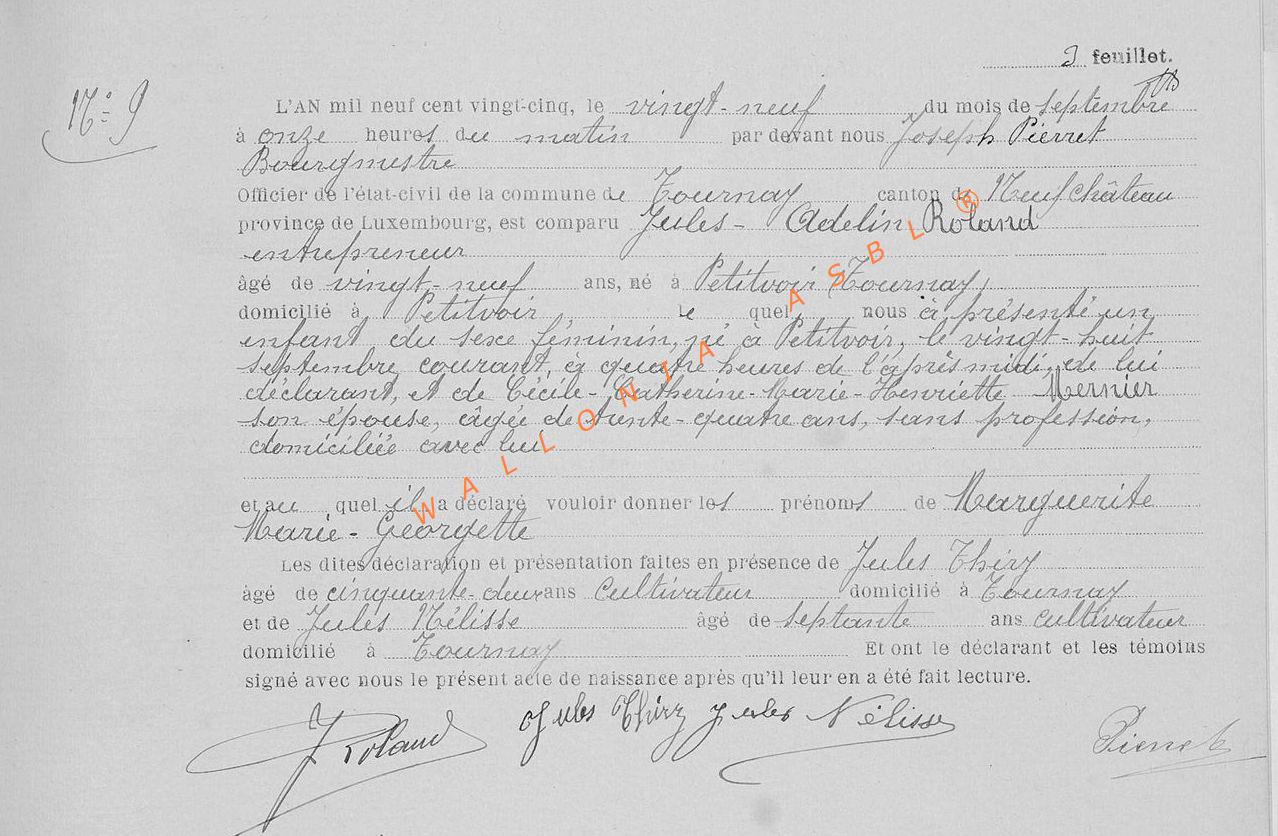 3 feuillet.
N° 9
L'AN mil neuf cent vingt-cinq, le vingt-neuf du mois de septembre
à onze heures du matin par devant nous Joseph Pierret
Bourgmestre
Officier de l'état-civil de la commune de Tournay canton de Neufchâteau
province de Luxembourg, est comparu Jules-Adelin Roland
entrepreneur
âgé de vingt-neuf ans, né à Petitvoir (Tournay)
domicilié à Petitvoir le quel nous a présenté un
enfant du sexe féminin, né à Petitvoir, le vingt-huit
septembre courant, à quatre heures de l'après midi, de lui
déclarant, et de Cécile-Catherine-Marie-Henriette Mernier
son épouse, âgée de trente-quatre ans, sans profession,
domiciliée avec lui
et au quel il a déclaré vouloir donner les prénoms de Marguerite
Marie-Georgette
Les dites déclaration et présentation faites en présence de Jules Thiry
âgé de cinquante-deux ans cultivateur domicilié à Tournay
et de Jules Nélisse âgé de septante ans cultivateur
domicilié à Tournay Et ont le déclarant et les témoins
signé avec nous le présent acte de naissance après qu'il leur en a été fait lecture.
J Roland Jules Thiry Jules Nélisse Pierret
WALLONIA ASBL ®